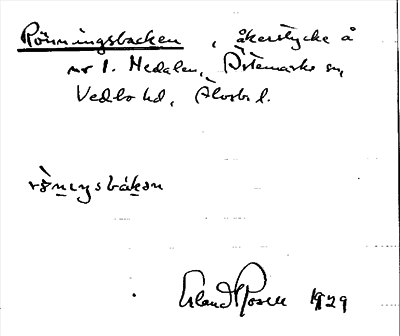 Rönningsbacken, åkerstycke å
nr 1. Nedalen, Östemarks sn,
Vedbo hd, Älvsb l.
rö̀nıŋsbákən
Erland Rosell 1929